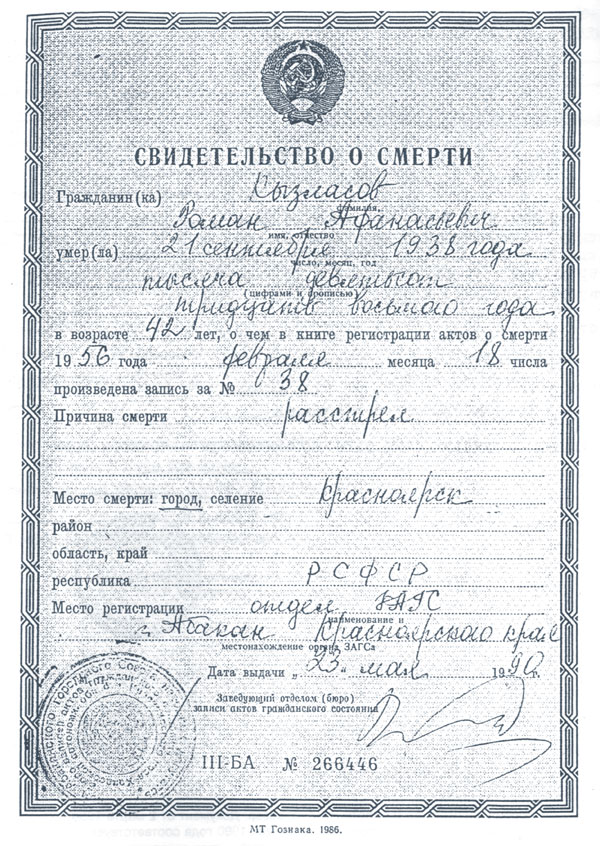 СВИДЕТЕЛЬСТВО О СМЕРТИ
Гражданин(ка) Кызласов
фамилия,
Роман Афанасьевич
имя, отчество
умер(ла) 21 сентября 1938 года
число, месяц, год
тысяча девятьсот
(цифрами и прописью)
тридцать восьмого года
в возрасте 42 лет, о чем в книге регистрации актов о смерти
1956 года февраля месяца 18 числа
произведена запись за № 38
Причина смерти расстрел
Место смерти: город, селение Красноярск
район
область, край
республика РСФСР
Место регистрации отдел ЗАГС
наименование и
г. Абакан Красноярского края
местонахождение органа ЗАГСа
Дата выдачи „23“ мая 1990 г.
Заведующий отделом (бюро)
записи актов гражданского состояния
III-БА № 266446
МТ Гознака. 1986.